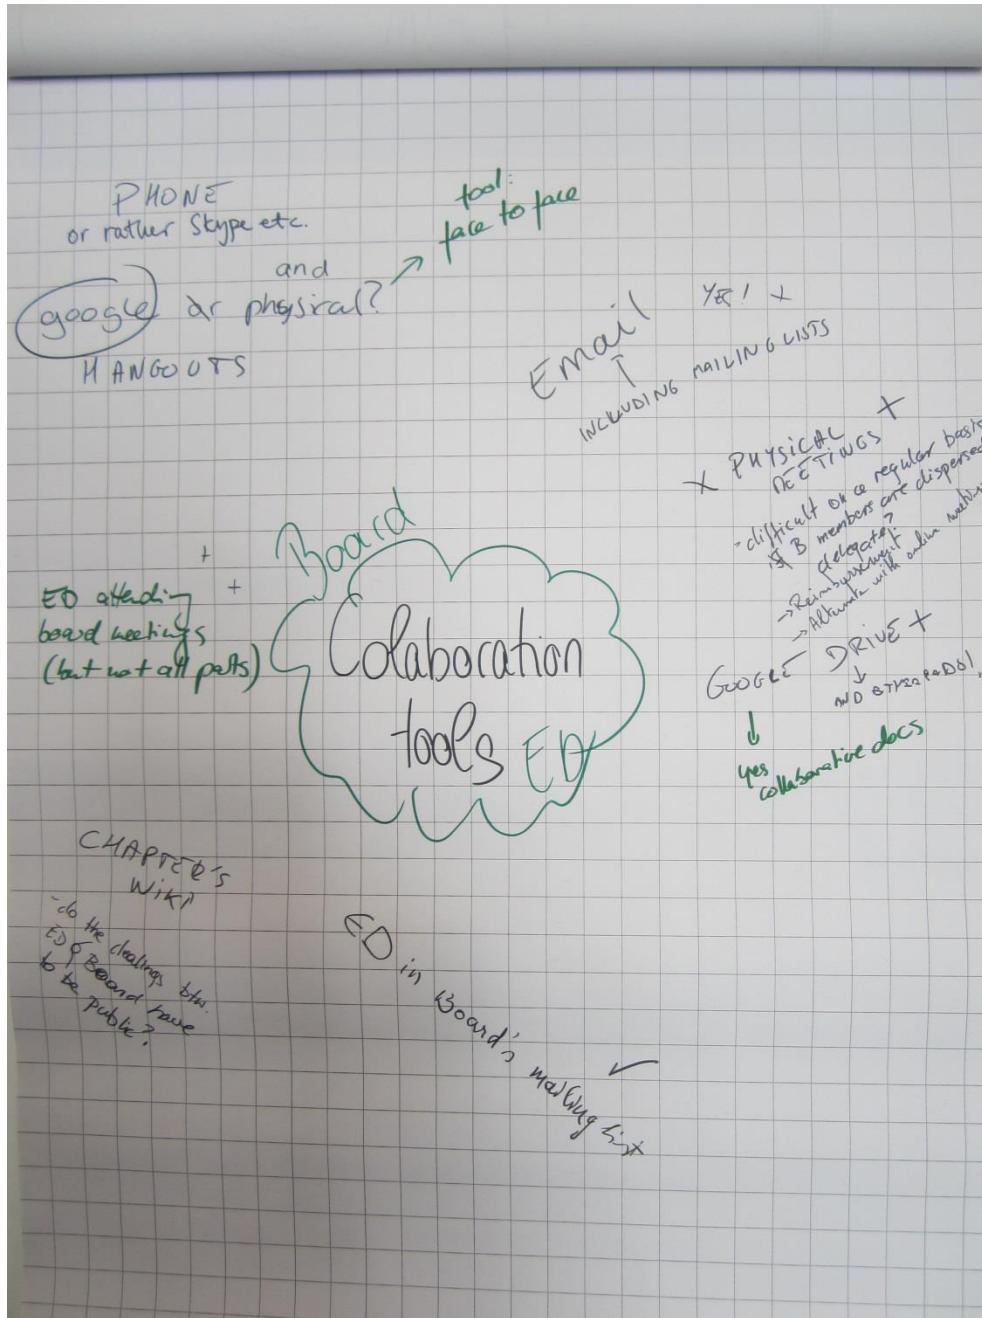 PHONE
or rather Skype etc.
and
google or physical?
HANGOUTS
tool:
face to face
Email
YES! +
INCLUDING MAILING LISTS
+ PHYSICAL +
MEETINGS
- difficult on a regular basis
B members are dispersed
delegate?
→ Reimbursement
→ Alternate with online
GOOGLE DRIVE +
AND ETHERPADS!
yes
collaborative docs
Board
Colaboration
tools ED
+
+
ED attending
board meetings
(but not all parts)
CHAPTER'S
WIKI
- do the dealings btw.
ED & Board have
to be public?
ED in Board's mailing list ✓